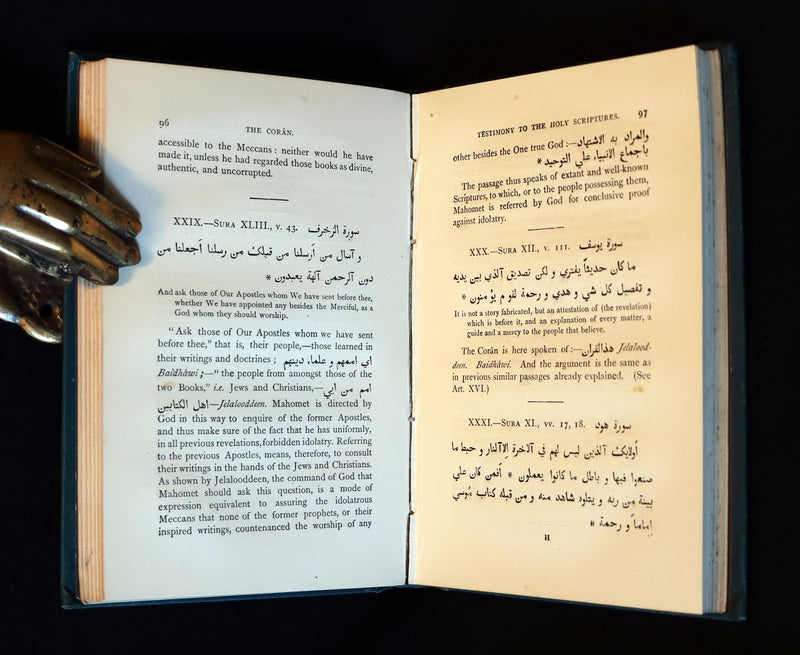 96
THE CORÂN.
accessible to the Meccans: neither would he have
made it, unless he had regarded those books as divine,
authentic, and uncorrupted.
XXIX.—SURA XLIII., v. 43. سورة الزخرف
و آسال من آرسلنا من قبلك من رسلنا آجعلنا من
دون آلرحمن آلهة يعبدون *
And ask those of Our Apostles whom We have sent before thee,
whether We have appointed any besides the Merciful, as a
God whom they should worship.
"Ask those of Our Apostles whom we have sent
before thee," that is, their people,—those learned in
their writings and doctrines; اي اممهم و علماء دينهم
Baidhâwi;—"the people from amongst those of the
two Books," i.e. Jews and Christians,—امم من اي
اهل الكتابين—Jelalooddeen. Mahomet is directed by
God in this way to enquire of the former Apostles,
and thus make sure of the fact that he has uniformly,
in all previous revelations, forbidden idolatry. Referring
to the previous Apostles, means, therefore, to consult
their writings in the hands of the Jews and Christians.
As shown by Jelalooddeen, the command of God that
Mahomet should ask this question, is a mode of
expression equivalent to assuring the idolatrous
Meccans that none of the former prophets, or their
inspired writings, countenanced the worship of any
TESTIMONY TO THE HOLY SCRIPTURES.
97
other besides the One true God:—والمراد به الاشتهاد
باجماع الانبياء علي التوحيد *
The passage thus speaks of extant and well-known
Scriptures, to which, or to the people possessing them,
Mahomet is referred by God for conclusive proof
against idolatry.
XXX.—SURA XII., v. 111. سورة يوسف
ما كان حديثاً يفتري و لكن تصديق آلذي بين يديه
و تفصيل كل شي و هدي و رحمة لقوم يؤمنون *
It is not a story fabricated, but an attestation of (the revelation)
which is before it, and an explanation of every matter, a
guide and a mercy to the people that believe.
The Corân is here spoken of:—هذا القران Jelalood-
deen. Baidhâwi. And the argument is the same as
in previous similar passages already explained. (See
Art. XVI.)
XXXI.—SURA XI., vv. 17, 18. سورة هود
آولايك آلذين ليس لهم في آلاخرة الاآلنار و حبط ما
صنعوا فيها و باطل ما كانوا يعملون * آفمن كان علي
بينة من ربه و يتلوه شاهد منه و من قبله كتاب موسي
اماماً و رحمة *
H